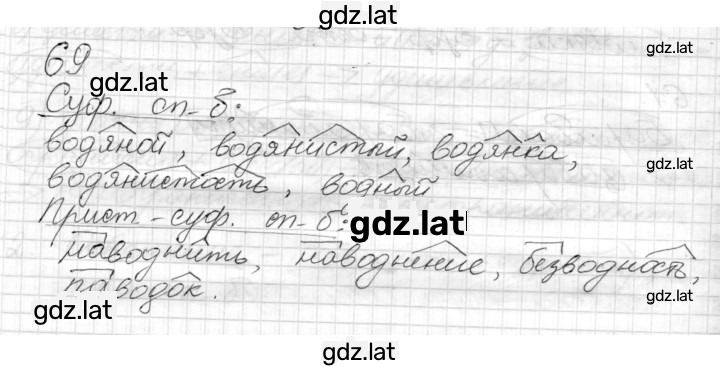 gdz.lat
69
gdz.lat
gdz.lat
Суф. сп-б:
водяной, водянистый, водянка,
gdz.lat
водянистость, водный
Прист-суф. сп-б:
gdz.lat
наводнить, наводнение, безводность,
gdz.lat
паводок.
gdz.lat
gdz.lat